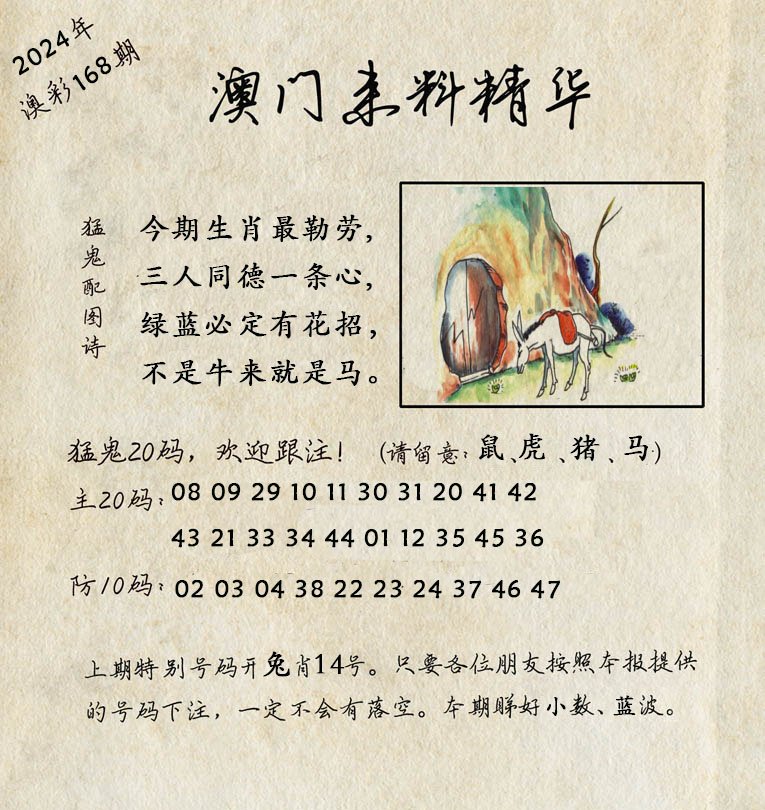 2024年
澳彩168期
澳门来料精华
猛鬼配图诗
今期生肖最勒劳，
三人同德一条心，
绿蓝必定有花招，
不是牛来就是马。
猛鬼20码，欢迎跟注！（请留意：鼠、虎、猪、马）
主20码：08 09 29 10 11 30 31 20 41 42
43 21 33 34 44 01 12 35 45 36
防10码：02 03 04 38 22 23 24 37 46 47
上期特别号码开兔肖14号。只要各位朋友按照本报提供
的号码下注，一定不会有落空。本期睇好小数、蓝波。